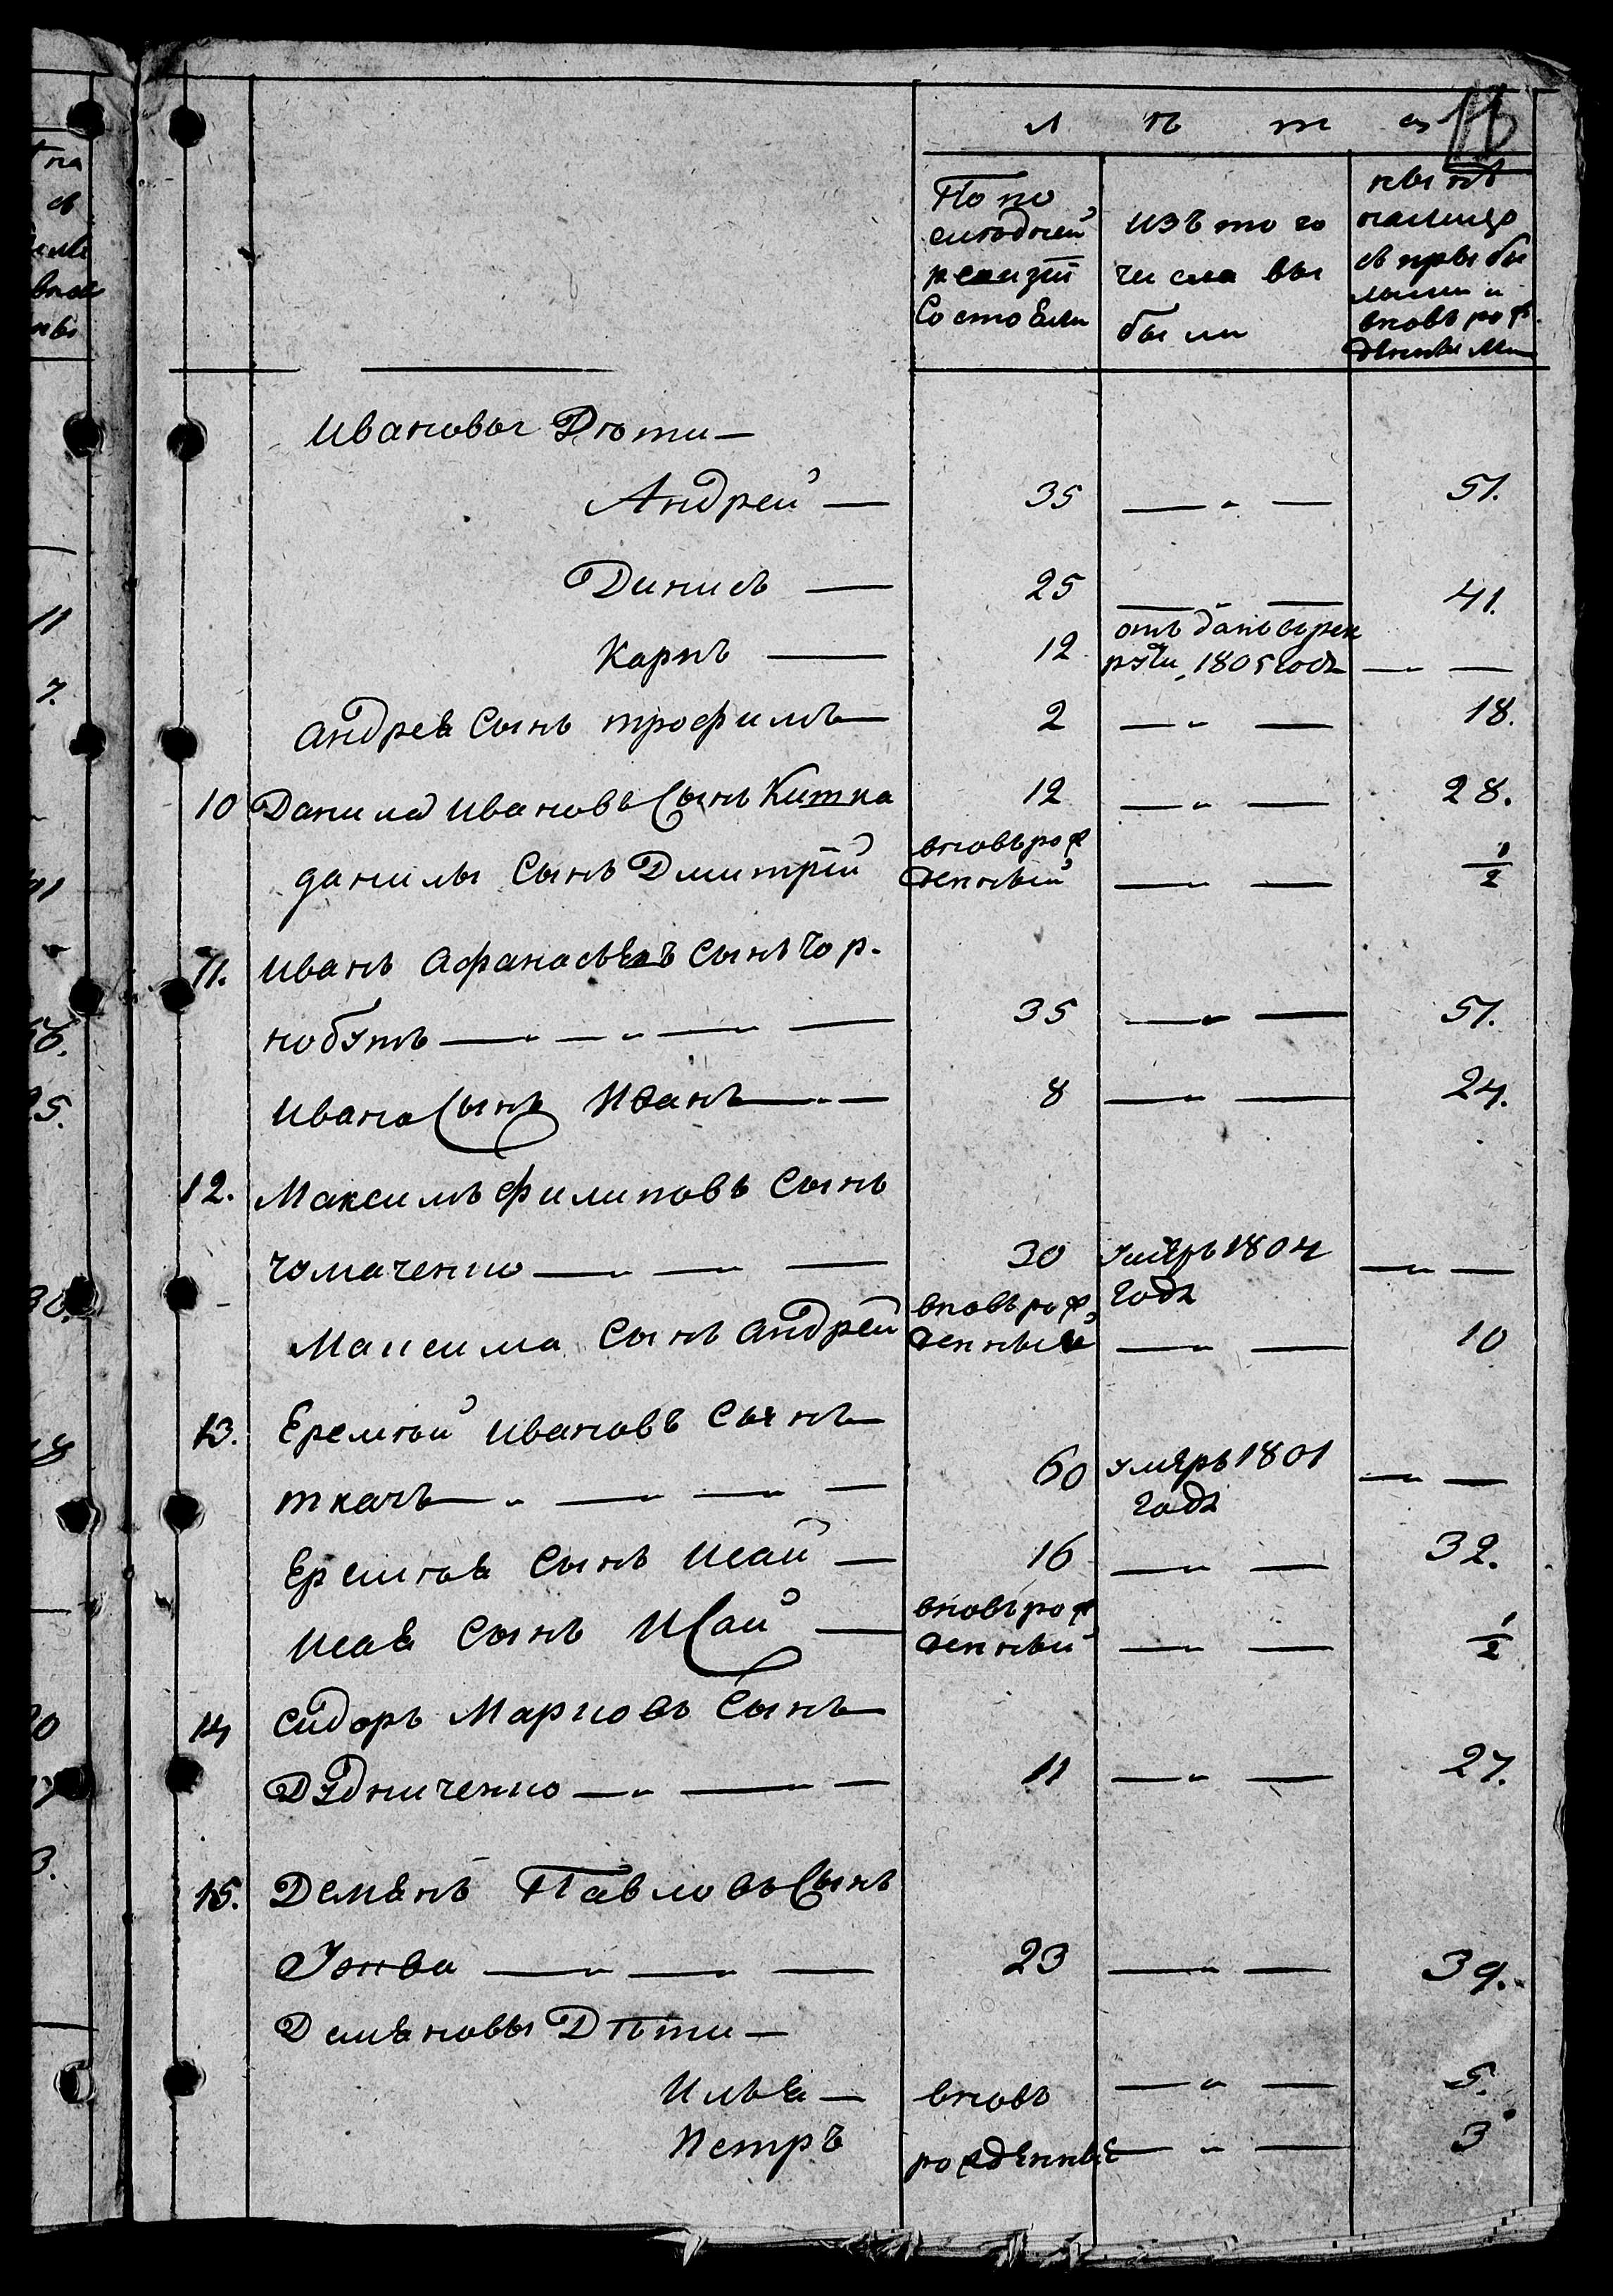 лѣта
16
По по
слѣдней
ревизіи
Состоѣли
изъ того
числа вы
были
нынѣ
налицо
съ прыбы
лыми и
вновь рож
денными
Ивановы Дѣти —
Андрей — 35 — „ — 51.
Динисъ — 25 — „ — 41.
Карпъ — 12 отъ данъ въ рек
руты 1805 года — —
Андрея Сынъ трофимъ — 2 — „ — 18.
10 Данила Ивановъ Сынъ Китка 12 — „ — 28.
данилы Сынъ Дмитрій вновь рож
денный — „ — 1/2
11. Иванъ Афанасьевъ Сынъ Чор-
нобутъ — „ — „ — „ — 35 — „ — 51.
Ивана Сынъ Иванъ — „ — 8 — „ — 24.
12. Максимъ филиповъ Сынъ
чомаченко — „ — „ — 30 умеръ 1804
года — „ —
Максима Сынъ Андрей вновь рож
денный — „ — 10
13. Еремѣй Ивановъ Сынъ —
ткачъ — „ — „ — „ — 60 умеръ 1801
года — „ —
Еремѣя Сынъ Исай — 16 — „ — 32.
Исая Сынъ Исай — вновь рож
денный — „ — 1/2
14 Сидоръ Марковъ Сынъ —
Дудниченко — „ — „ — 11 — „ — 27.
15. Демянъ Павловъ Сынъ
23 — „ — 39.
Демяновы Дѣти —
Илья — вновь — „ — 5.
Петръ рожденные — „ — 3